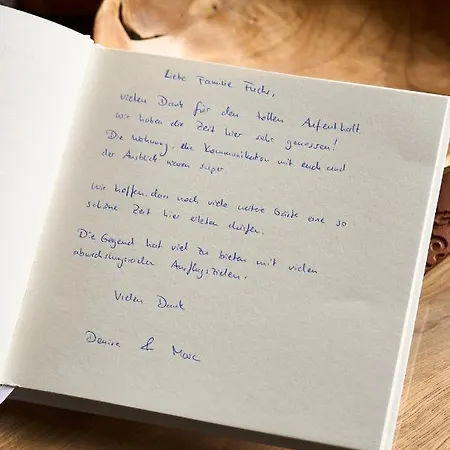 Liebe Familie Fuchs,
vielen Dank für den tollen Aufenthalt.
Wir haben die Zeit hier sehr genossen!
Die Wohnung, die Kommunikation mit euch und
der Ausblick waren super
Wir hoffen, dass noch viele weitere Gäste eine so
schöne Zeit hier erleben dürfen.
Die Gegend hat viel zu bieten mit vielen
abwechslungsreichen Ausflugszielen.
Vielen Dank
Denise & Marc